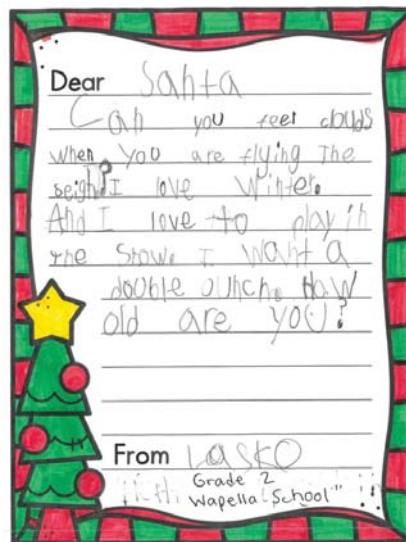 Dear Santa
Can you feel clouds
when you are flying The
seigh? I love Winter.
And I love to play in
the Snow. I want a
double ounch. how
old are you?
From Lasko
Grade 2
Wapella School